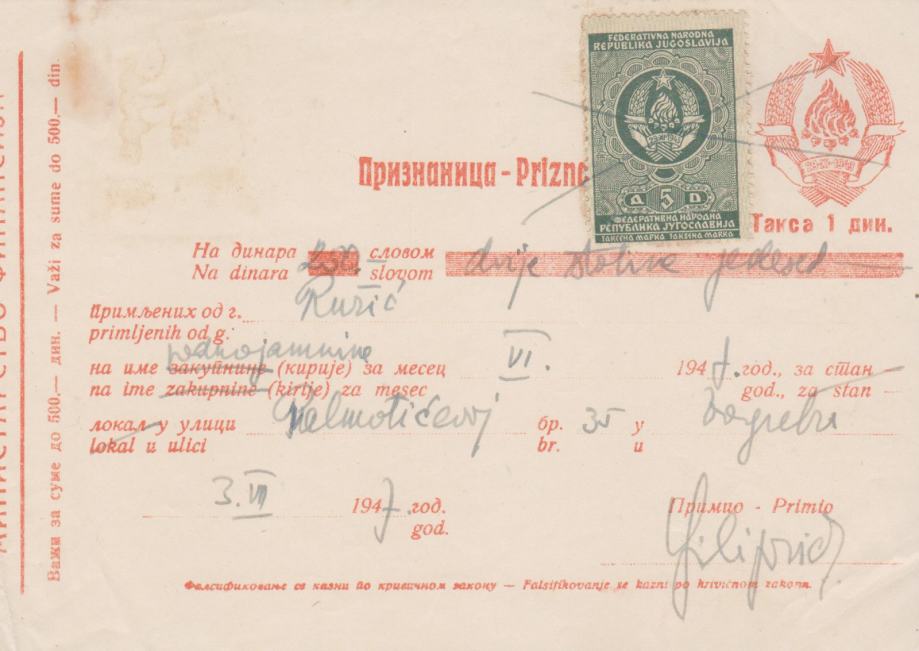 FEDERATIVNA NARODNA
REPUBLIKA JUGOSLAVIJA
Д 5 D
ФЕДЕРАТИВНА НАРОДНА
РЕПУБЛИКА ЈУГОСЛАВИЈА
ТАКСЕНА МАРКА TAKSENA MARKA
Признаница - Prizn
Такса 1 дин.
На динара 250 словом
Na dinara slovom dvije stotine pedeset
Примљених од г. Ružić
primljenih od g.
на име закупнине (кирије) за месец VI. 1947. год., за стан
na ime zakupnine (kirije) za mesec god., za stan
локал у улици Palmotićevoj бр. 35 у Zagrebu
lokal u ulici br. u
3. VII 1947 год.
god.
Примио - Primio
Filipović
Фалсификовање се казни по кривичном закону — Falsifikovanje se kazni po krivičnom zakonu.
Важи за суме до 500.— дин. — Važi za sume do 500.— din.